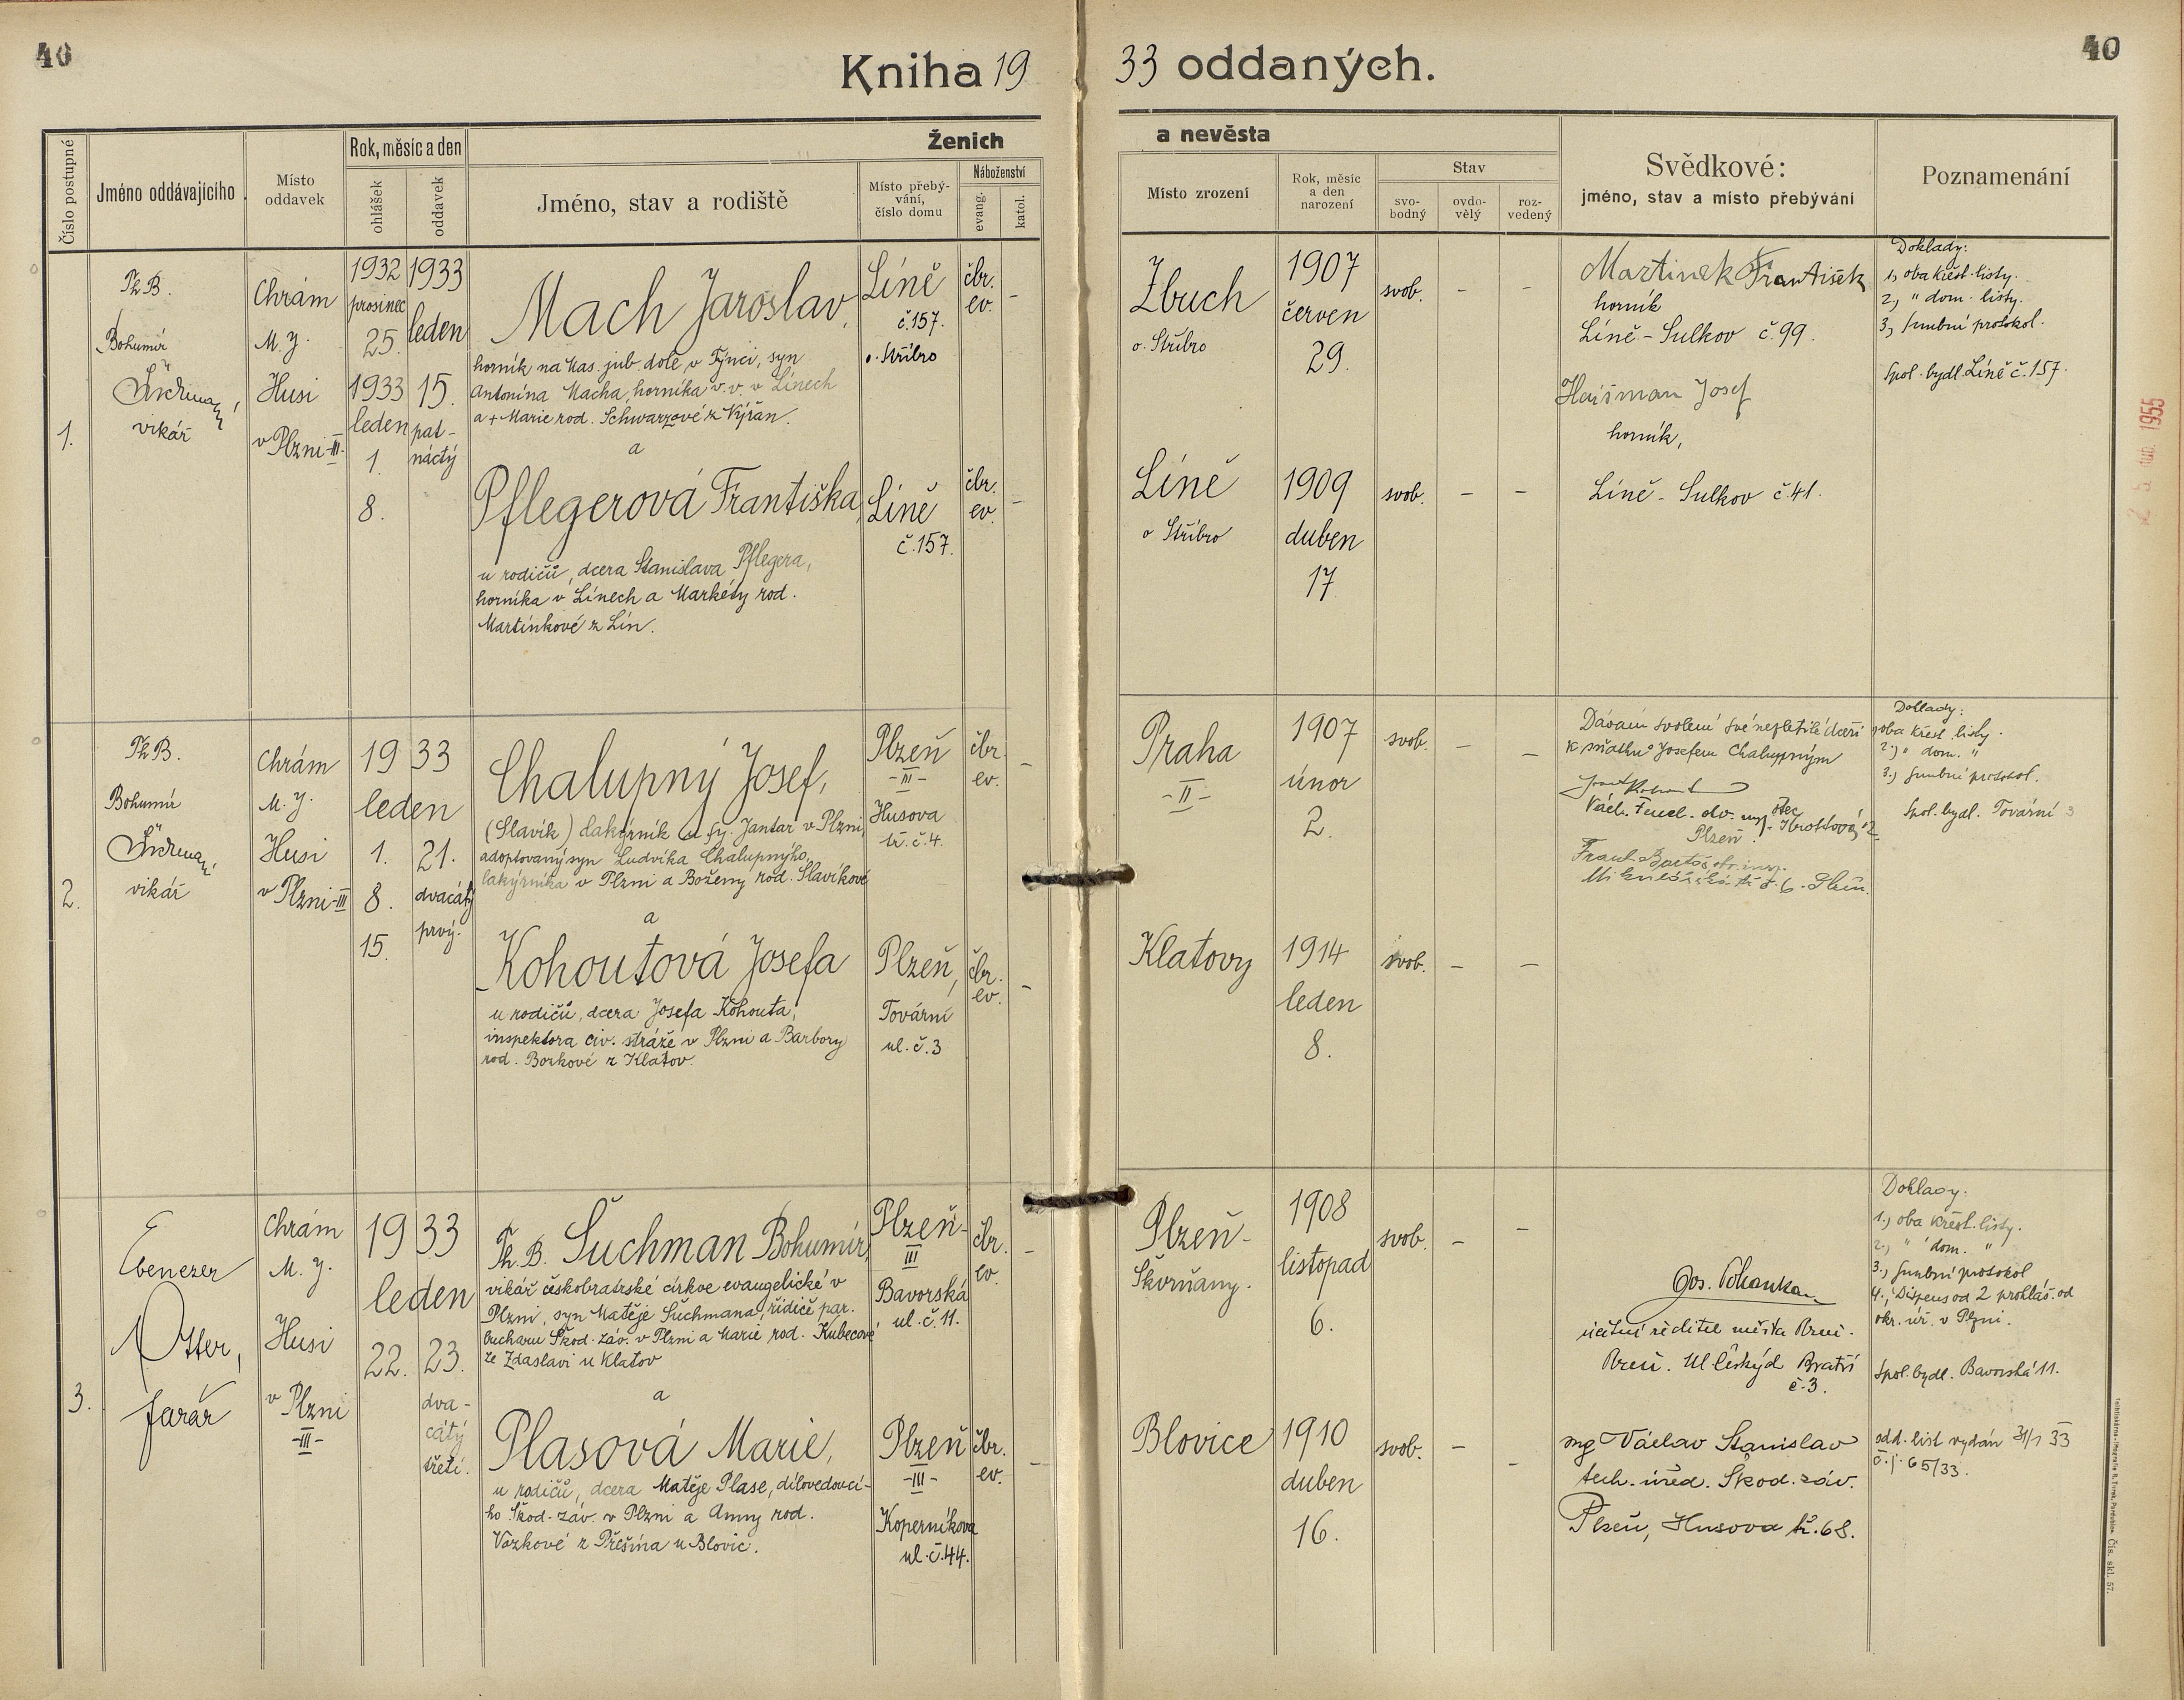 40
Kniha 19
33 oddaných.
40
Číslo postupné
Jméno oddávajícího
Místo oddavek
Rok, měsíc a den
ohlášek
oddavek
Ženich
Jméno, stav a rodiště
Místo přebý-
vání,
číslo domu
Náboženství
evang.
katol.
a nevěsta
Místo zrození
Rok, měsíc
a den
narození
Stav
svo-
bodný
ovdo-
vělý
roz-
vedený
Svědkové:
jméno, stav a místo přebývání
Poznamenání
1.
Th.B.
Bohumír
Šuchman,
vikář
Chrám
M. J.
Husi
v Plzni-III-
1932
prosinec
25.
1933
leden
1.
8.
1933
leden
15.
pat-
náctý
Mach Jaroslav,
horník na Mas. jub. dole v Týnci, syn
Antonína Macha, horníka v.v. v Línech
a + Marie rod. Schwarzové z Výřan.
a
Pflegerová Františka,
u rodičů, dcera Stanislava Pflegera,
horníka v Línech a Markéty rod.
Martínkové z Lín.
Líně
č.157.
o. Stříbro
čbr.
ev.
-
Líně
č.157.
čbr.
ev.
-
Zbuch
o. Stříbro
1907
červen
29.
svob.
-
-
Líně
o Stříbro
1909
duben
17
svob.
-
-
Martinek František
horník
Líně - Sulkov č.99.
Haisman Josef
horník,
Líně - Sulkov č.41.
Doklady:
1, oba křest. listy.
2., " dom. listy.
3, snubní protokol.
Spol. bydl. Líně č.157.
1955
2.
Th.B.
Bohumír
Šuchman,
vikář
Chrám
M. J.
Husi
v Plzni-III
19 33
leden
1.
8.
15.
21.
dvacátý
prvý.
Chalupný Josef,
(Slavík) lakýrník u fy. Jantar v Plzni,
adoptovaný syn Ludvíka Chalupnýho,
lakýrníka v Plzni a Boženy rod. Slavíkové
a
Kohoutová Josefa
u rodičů, dcera Josefa Kohouta,
inspektora civ. stráže v Plzni a Barbory
rod. Borkové z Klatov.
Plzeň
-III-
Husova
tř. č.4.
čbr.
ev.
-
Plzeň,
Tovární
ul. č.3
čbr.
ev.
-
Praha
-II-
1907
únor
2.
svob.
-
-
Klatovy
1914
leden
8.
svob.
-
-
Dávám svolení své nezletilé dceři
k sňatku s Josefem Chalupným
otec
Plzeň.
Doklady:
1, oba křest. listy.
2.) " dom. "
3.) snubní protokol.
Spol. bydl. Tovární 3
3.
Ebenezer
Otter,
farář
Chrám
M. J.
Husi
v Plzni
-III-
19 33
leden
22.
23.
dva-
cátý
třetí.
Th. B. Šuchman Bohumír,
vikář českobratrské církve evangelické v
Plzni, syn Matěje Šuchmana, řidiče par.
bucharu Škod. záv. v Plzni a Marie rod. Kubecové
ze Zdaslavi u Klatov
a
Plasová Marie,
u rodičů, dcera Matěje Plase, dílovedoucí-
ho Škod. záv. v Plzni a Anny rod.
Vozkové z Přešína u Blovic.
Plzeň-
III
Bavorská
ul. č.11.
čbr.
ev.
-
Plzeň
-III-
Koperníkova
ul. č.44.
čbr.
ev.
-
Plzeň-
Škvrňany.
1908
listopad
6.
svob.
-
-
Blovice
1910
duben
16.
svob.
-
-
účetní ředitel města Plzně.
Plzeň. Ul Českých Bratří
č.3.
Ing Václav Stanislav
tech. úřed. Škod. záv.
Plzeň, Husova tř. 68.
Doklady.
1.) oba křest. listy.
2., " dom. "
3., snubní protokol
4., Dispens od 2 prohláš. od
okr. úř. v Plzni.
Spol. bydl. Bavorská 11.
odd. list vydán 31/1 33
č.j. 65/33.